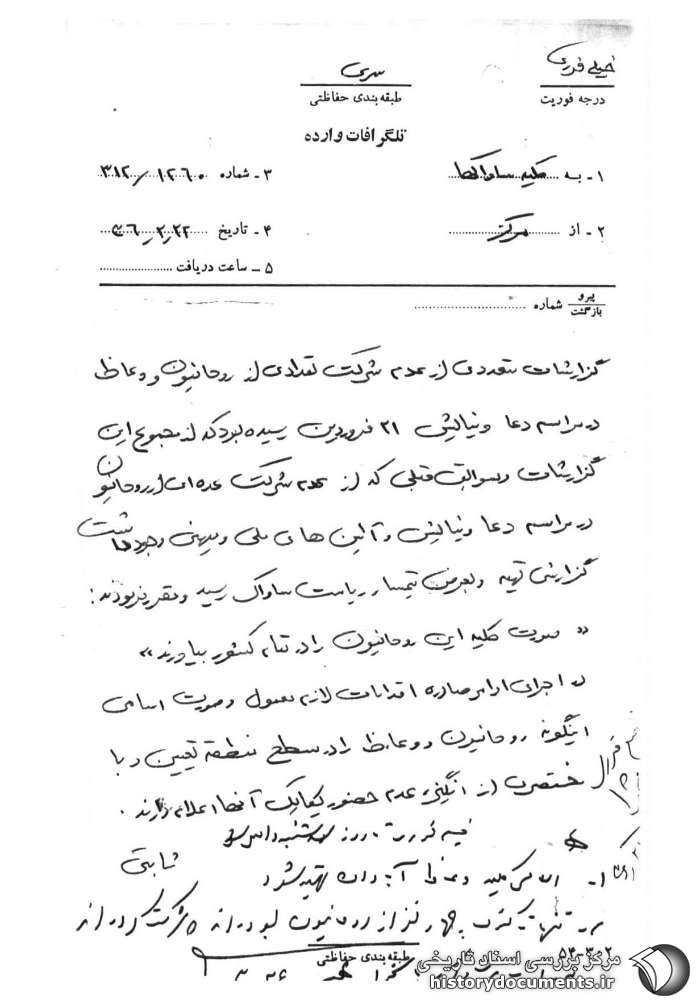 خیلی فوری
درجه فوریت
سری
طبقه‌بندی حفاظتی
تلگرافات وارده
۱ - به کلیه ساواکها
۳ - شماره ۳۱۲/۱۲۶۰
۲ - از مرکز
۴ - تاریخ ۳۶-۲-۲۲
۵ - ساعت دریافت
پیرو
بازگشت
شماره
گزارشات متعددی از عدم شرکت تعدادی از روحانیون و وعاظ
در مراسم دعا و نیایش ۲۱ فروردین رسیده بود که از مجموع این
گزارشات و سوابق قبلی که از عدم شرکت عده‌ای از روحانیون
در مراسم دعا و نیایش و آئین های ملی و میهنی وجود داشت
گزارشی تهیه و بعرض تیمسار ریاست ساواک رسید و مقرر فرمودند:
« صورت کلیه این روحانیون را در تمام کشور بیاورند »
در اجرای اوامر صادره اقدامات لازم معمول و صورت اسامی
اینگونه روحانیون و وعاظ را در سطح منطقه تعیین و با
مختصری از انگیزه عدم حضور یکایک آنها اعلام دارند .
ثابتی
۱- اسامی کلیه وعاظ آبادان تهیه شود
چهار نفر از روحانیون شرکت کرده‌اند
طبقه‌بندی حفاظتی
مرکز بررسی اسناد تاریخی
historydocuments.ir